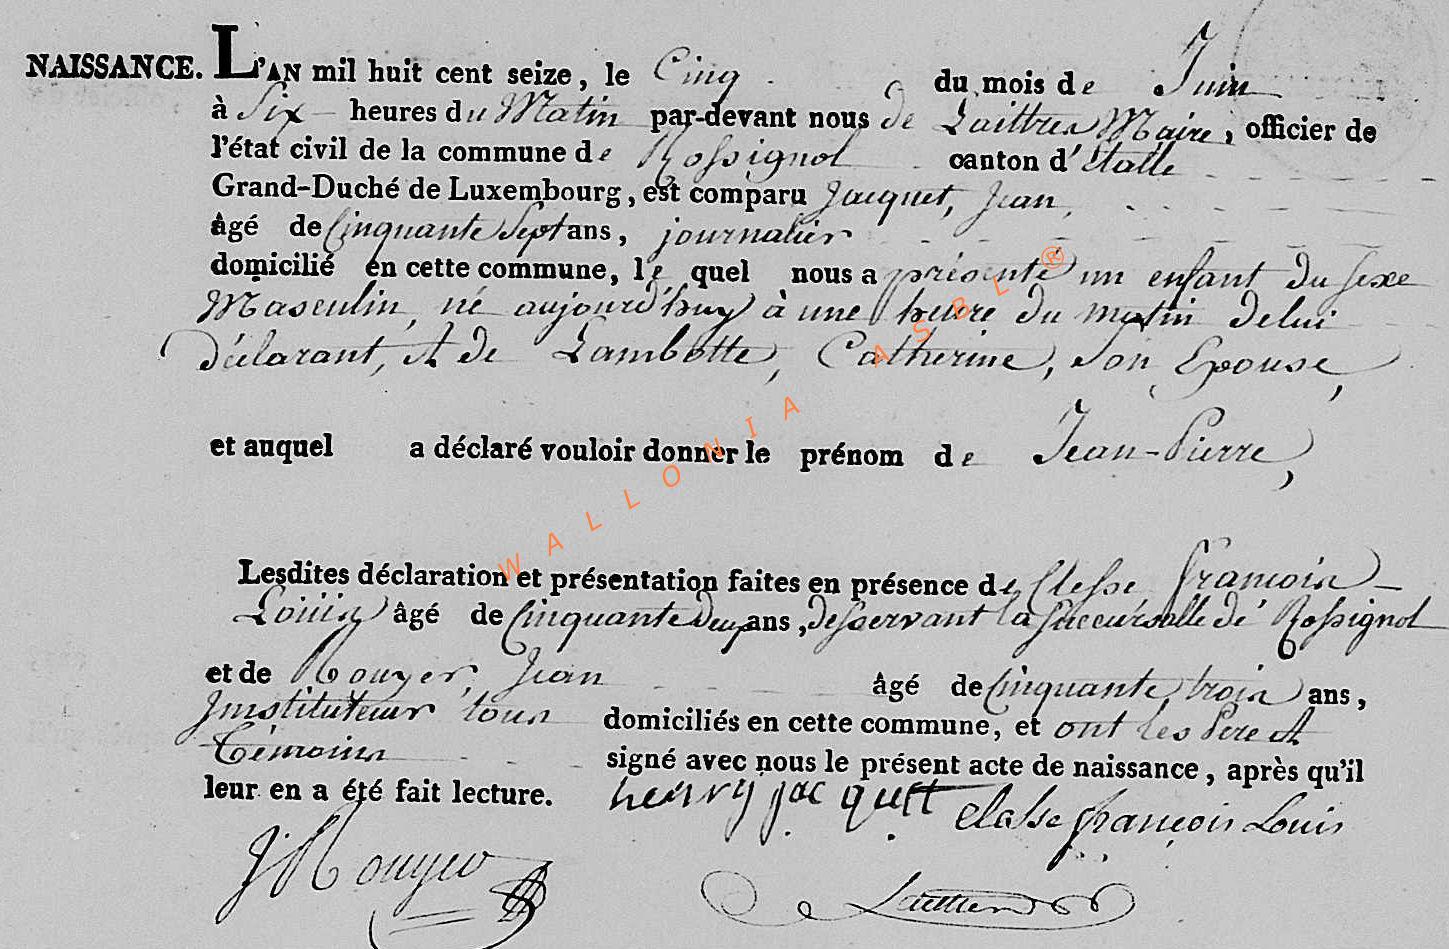 NAISSANCE. L'AN mil huit cent seize, le Cinq du mois de Juin
à Six heures du Matin par-devant nous de Laittres Maire, officier de
l'état civil de la commune de Rossignol canton d'Etalle
Grand-Duché de Luxembourg, est comparu Jacquet, Jean,
âgé de Cinquante Sept ans, journalier
domicilié en cette commune, le quel nous a présenté un enfant du sexe
Masculin, né aujourd'huy à une heure du matin de lui
déclarant, et de Lambotte, Catherine, son Epouse,
et auquel a déclaré vouloir donner le prénom de Jean-Pierre,
Lesdites déclaration et présentation faites en présence de Clesse François
Louis âgé de Cinquante deux ans, desservant la succursalle de Rossignol
et de Rouyer, Jean âgé de Cinquante trois ans,
Instituteur tous domiciliés en cette commune, et ont les Pere et
Témoins signé avec nous le présent acte de naissance, après qu'il
leur en a été fait lecture. henry jacquet Clesse françois Louis
J Rouyer
WALLONIA ASBL ®